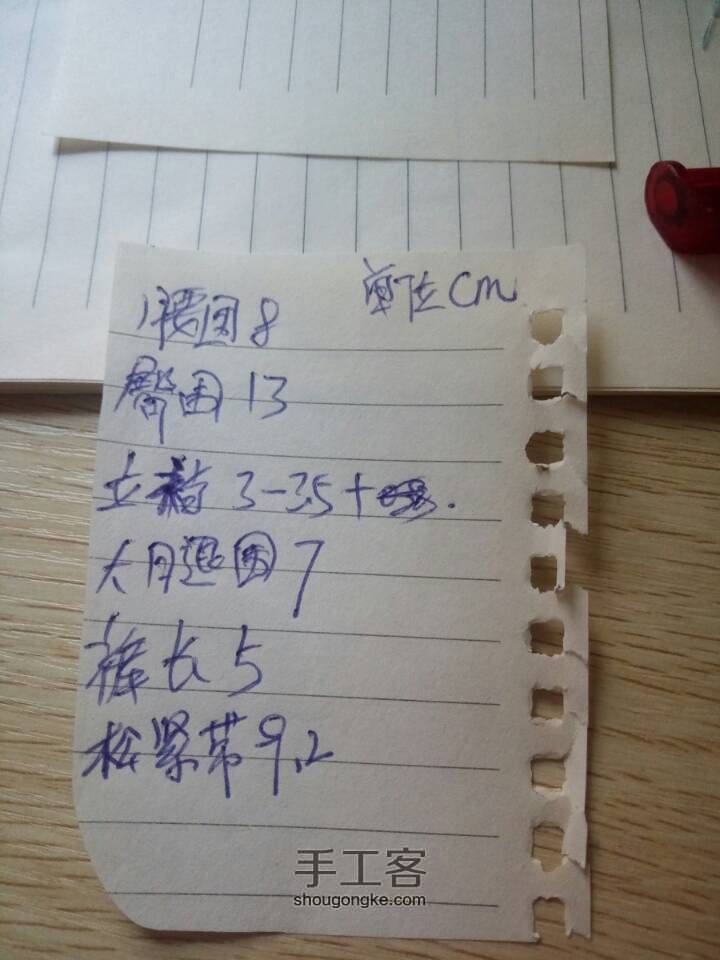 腰围8 单位cm
臀围13
立裆 3-3.5+
大腿围7
裤长5
松紧带9.2
手工客
shougongke.com